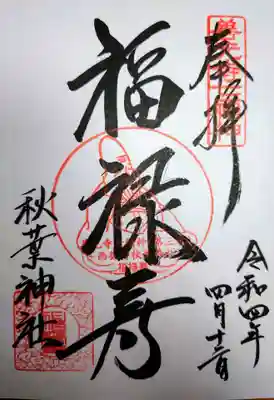 奉拝
福禄寿
秋葉神社
令和四年
四月十二日